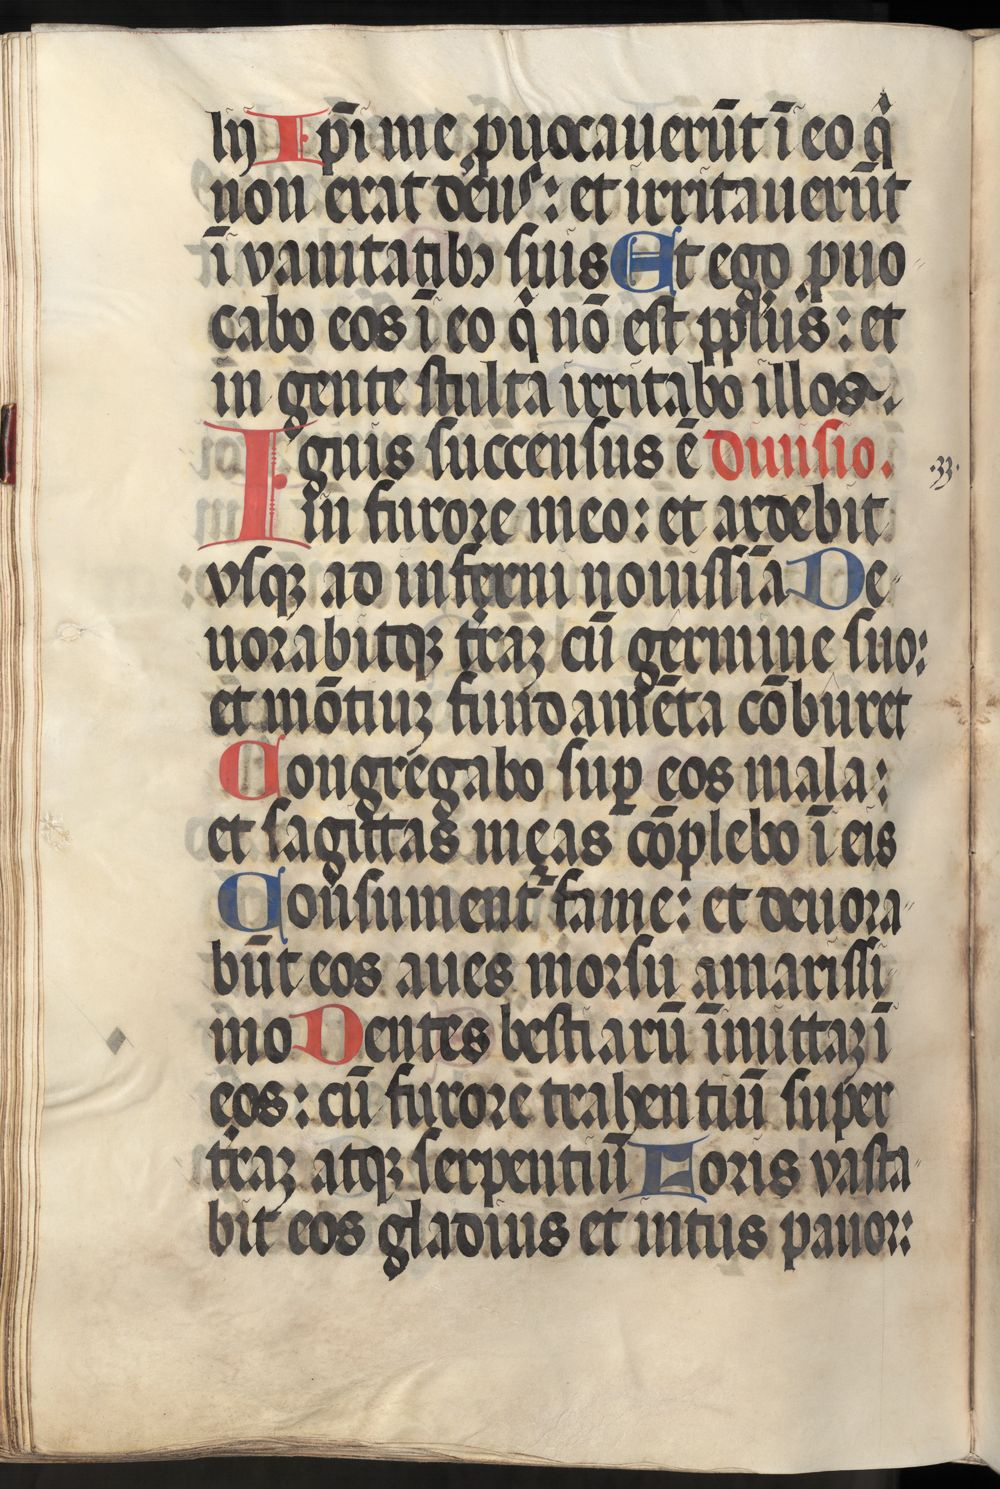 lij Ip̄i me ꝓuocauerūt ī eo q̇
non erat deus: et irritauerūt
ī vanitatibꝫ suis Et ego ꝓuo
cabo eos ī eo q̇ nō est pp̄lus: et
in gente stulta irritabo illos.
Ignis succensus ē Diuisio.
in furore meo: et ardebit
vsqꝫ ad inferni nouissīa De
uorabitqꝫ t̄raꝫ cū germine suo:
et mōtiuꝫ fundamēta cōburet
Congregabo suꝑ eos mala:
et sagittas meas cōplebo ī eis
Consument᷑ fame: et deuora
būt eos aues morsu amarissi
mo Dentes bestiarū īmittaꝫ ī
eos: cū furore trahentiū super
t̄raꝫ atqꝫ serpentiū Foris vasta
bit eos gladius et intus pauor:
·33·